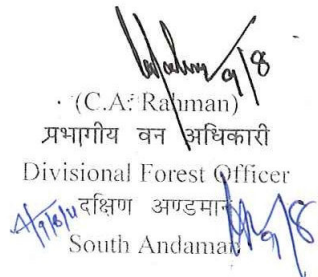 9/8
(C.A. Rahman)
प्रभागीय वन अधिकारी
Divisional Forest Officer
दक्षिण अण्डमान
South Andaman
9/8